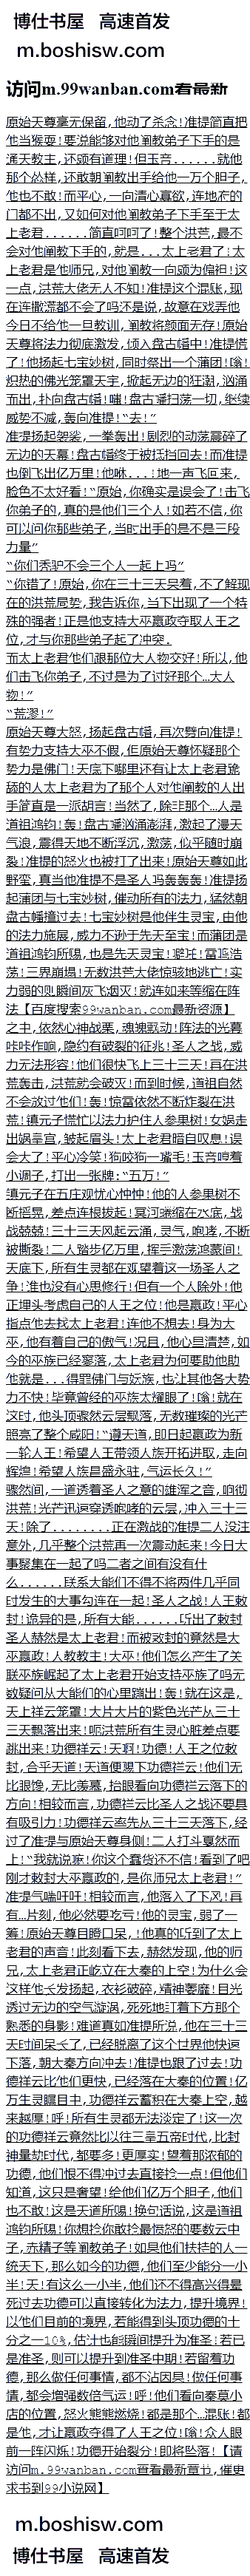 博仕书屋 高速首发
m.boshisw.com
访问m.99wanban.com看最新
原始天尊毫无保留,他动了杀念!准提简直把
他当猴耍!要说能够对他阐教弟子下手的是
通天教主,还颇有道理!但玉帝......就他
那个怂样,还敢朝阐教出手给他一万个胆子,
他也不敢!而平心,一向清心寡欲,连地府的
门都不出,又如何对他阐教弟子下手至于太
上老君......简直呵呵了!整个洪荒,最不
会对他阐教下手的,就是...太上老君了!太
上老君是他师兄,对他阐教一向颇为偏袒!这
一点,洪荒大佬无人不知!准提这个混账,现
在连撒谎都不会了吗还是说,故意在戏弄他
今日不给他一巨教训,阐教将颜面无存!原始
天尊将法力彻底激发,倾入盘古幡中!准提慌
了!他扬起七宝妙树,同时祭出一个蒲团!嗡!
炽热的佛光笼罩天宇,掀起无边的狂潮,汹涌
而出,扑向盘古幡!嗤!盘古幡扫荡一切,继续
威势不减,轰向准提!“去!”
准提扬起袈裟,一拳轰出!剧烈的动荡震碎了
无边的天幕!盘古幡终于被抵挡回去!而准提
也倒飞出亿万里!他咻...!地一声飞回来,
脸色不太好看!“原始,你确实是误会了!击飞
你弟子的,真的是他们三个人!如若不信,你
可以问你那些弟子,当时出手的是不是三段
力量”
“你们秃驴不会三个人一起上吗”
“你错了!原始,你在三十三天呆着,不了解现
在的洪荒局势,我告诉你,当下出现了一个特
殊的强者!正是他支持大巫嬴政夺取人王之
位,才与你那些弟子起了冲突.
而太上老君他们跟那位大人物交好!所以,他
们击飞你弟子,不过是为了讨好那个...大人
物!”
“荒谬!”
原始天尊大怒,扬起盘古幡,再次劈向准提!
有势力支持大巫不假,但原始天尊怀疑那个
势力是佛门!天底下哪里还有让太上老君跪
舔的人太上老君为了那个人对他阐教的人出
手简直是一派胡言!当然了,除非那个...人是
道祖鸿钧!轰!盘古幡汹涌澎湃,激起了漫天
气浪,震得天地不断浮沉,激荡,似乎随时崩
裂!准提的怒火也被打了出来!原始天尊如此
野蛮,真当他准提不是圣人吗轰轰轰!准提扬
起蒲团与七宝妙树,催动所有的法力,猛然朝
盘古幡撞过去!七宝妙树是他伴生灵宝,由他
的法力施展,威力不逊于先天至宝!而蒲团是
道祖鸿钧所赐,也是先天灵宝!砰砰!雷鸣浩
荡!三界崩塌!无数洪荒大佬惊骇地逃亡!实
力弱的则瞬间灰飞烟灭!就连如来等缩在阵
法【百度搜索99wanban.com最新资源】
之中,依然心神战栗,魂魄飘动!阵法的光幕
咔咔作响,隐约有破裂的征兆!圣人之战,威
力无法形容!他们很快飞上三十三天!再在洪
荒轰击,洪荒就会破灭!而到时候,道祖自然
不会放过他们!轰!惊雷依然不断炸裂在洪
荒!镇元子慌忙以法力护住人参果树!女娲走
出娲皇宫,皱起眉头!太上老君暗自叹息!误
会大了!平心冷笑!狗咬狗一嘴毛!玉帝哼着
小调子,打出一张牌:“五万!”
镇元子在五庄观忧心忡忡!他的人参果树不
断摇晃,差点连根拔起!冥河瑟缩在水底,战
战兢兢!三十三天风起云涌,灵气,咆哮,不断
被撕裂!二人踏步亿万里,挥手激荡鸿蒙间!
天底下,所有生灵都在观望着这一场圣人之
争!谁也没有心思修行!但有一个人除外!他
正埋头考虑自己的人王之位!他是嬴政!平心
指点他去找太上老君!连他不想去!身为大
巫,他有着自己的傲气!况且,他心里清楚,如
今的巫族已经寥落,太上老君为何要助他助
他就是...得罪佛门与妖族,也让其他各大势
力不快!毕竟曾经的巫族太耀眼了!嗡!就在
这时,他头顶骤然云层飘落,无数璀璨的光芒
照亮了整个咸阳!“遵天道,即日起嬴政为新
一轮人王!希望人王带领人族开拓进取,走向
辉煌!希望人族昌盛永驻,气运长久!”
骤然间,一道透着圣人之意的雄浑之音,响彻
洪荒!光芒迅速穿透咆哮的云层,冲入三十三
天!除了........正在激战的准提二人没注
意外,几乎整个洪荒再一次震动起来!今日大
事聚集在一起了吗二者之间有没有什
么......联系大能们不得不将两件几乎同
时发生的大事勾连在一起!圣人之战!人王敕
封!诡异的是,所有大能......听出了敕封
圣人赫然是太上老君!而被敕封的竟然是大
巫嬴政!人教教主!大巫!他们怎么产生了关
联巫族崛起了太上老君开始支持巫族了吗无
数疑问从大能们的心里蹦出!轰!就在这是,
天上祥云笼罩!大片大片的紫色光芒从三十
三天飘落出来!呃洪荒所有生灵心脏差点要
跳出来!功德祥云!天啊!功德!人王之位敕
封,合乎天道!天道便赐下功德祥云!他们无
比眼馋,无比羡慕,抬眼看向功德祥云落下的
方向!相较而言,功德祥云比圣人之战还要具
有吸引力!功德祥云率先从三十三天落下,经
过了准提与原始天尊身侧!二人打斗戛然而
上!“我就说嘛!你这个蠢货还不信!看到了吧
刚才敕封大巫嬴政的,是你师兄太上老君!”
准提气喘吁吁!相较而言,他落入了下风!再
有...片刻,他必然要吃亏!他的灵宝,弱了一
筹!原始天尊目瞪口呆,!他真的听到了太上
老君的声音!此刻看下去,赫然发现,他的师
兄,太上老君正屹立在大秦的上空!为什么会
这样他长发扬起,衣衫破碎,精神萎靡!目光
透过无边的空气漩涡,死死地盯着下方那个
熟悉的身影!难道真如准提所说,他在三十三
天时间呆长了,已经脱离了这个世界他快速
下落,朝大秦方向冲去!准提也跟了过去!功
德祥云比他们更快,已经落在大秦的位置!亿
万生灵瞩目中,功德祥云蓄积在大秦上空,越
来越厚!呼!所有生灵都无法淡定了!这一次
的功德祥云竟然比以往三皇五帝时代,比封
神量劫时代,都要多!更厚实!望着那浓郁的
功德,他们恨不得冲过去直接抢一点!但他们
知道,这只是奢望!给他们亿万个胆子,他们
也不敢!这是天道所赐!换句话说,这是道祖
鸿钧所赐!你想抢你敢抢最愤怒的要数云中
子,赤精子等阐教弟子!如果他们扶持的人一
统天下,那么如今的功德,他们至少能分一小
半!天!有这么一小半,他们还不得高兴得晕
死过去功德可以直接转化为法力,提升境界!
以他们目前的境界,若能得到头顶功德的十
分之一10%,估计也能瞬间提升为准圣!若已
是准圣,则可以提升到准圣中期!若留着功
德,那么做任何事情,都不沾因果!做任何事
情,都会增强数倍气运!呼!他们看向秦莫小
店的位置,怒火熊熊燃烧!都是那个...混账!都
是他,才让嬴政夺得了人王之位!嗡!众人眼
前一阵闪烁!功德开始裂分!即将坠落!【请
访问m.99wanban.com查看最新章节,催更
求书到99小说网】
m.boshisw.com
博仕书屋 高速首发